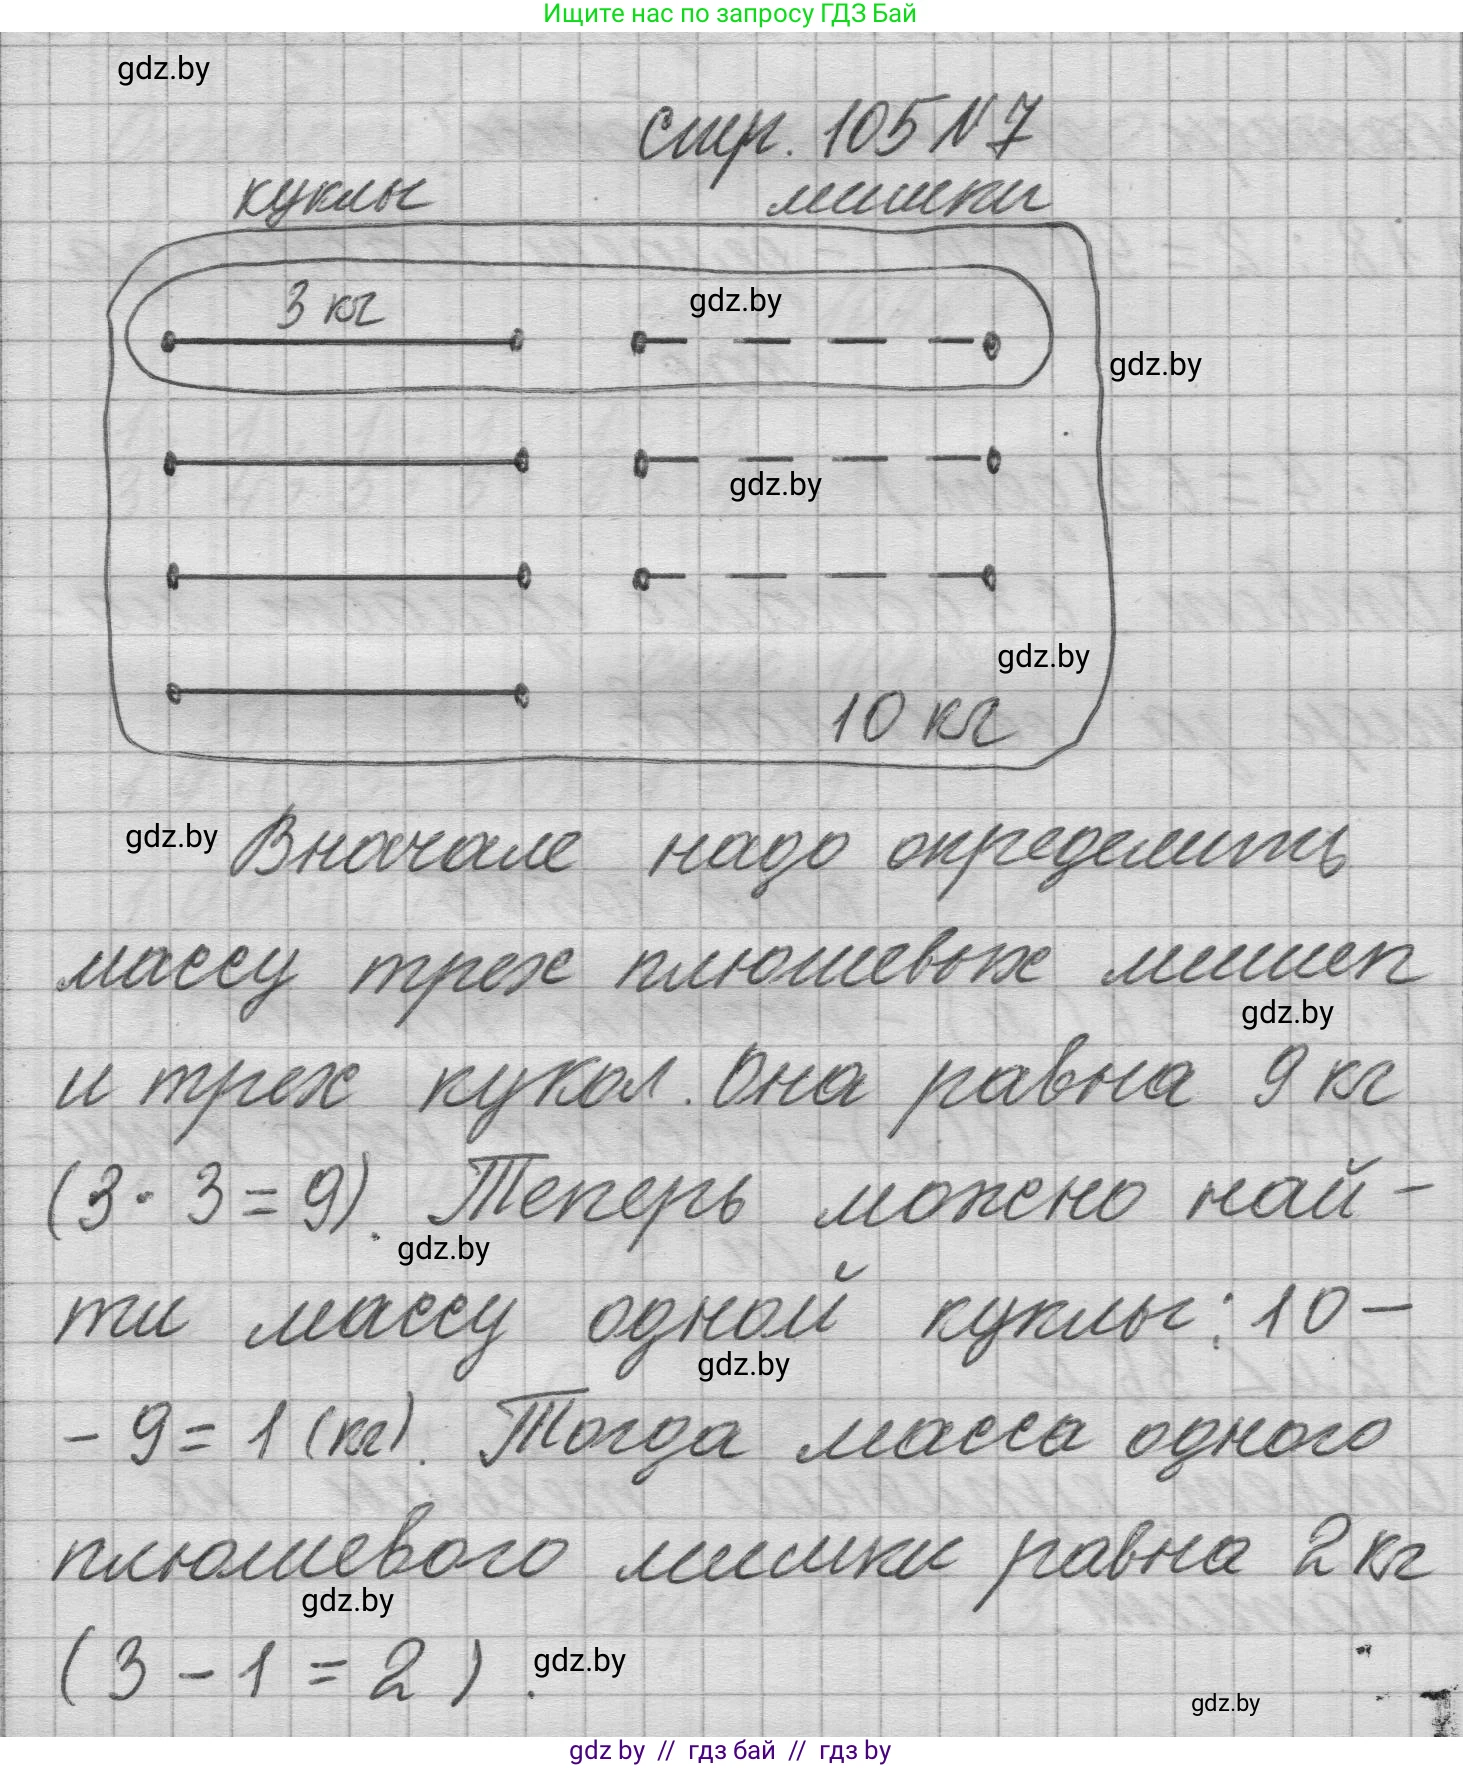 Ищите нас по запросу ГДЗ Бай
gdz.by
стр. 105 № 7
куклы мишки
3 кг
gdz.by
gdz.by
gdz.by
gdz.by
10 кг
gdz.by
Вначале надо определить
массу трех плюшевых мишек
gdz.by
и трех кукол. Она равна 9 кг
(3 · 3 = 9). Теперь можно най-
gdz.by
ти массу одной куклы: 10 -
gdz.by
- 9 = 1 (кг). Тогда масса одного
плюшевого мишки равна 2 кг
gdz.by
(3 - 1 = 2).
gdz.by
gdz.by
gdz by // гдз бай // гдз by